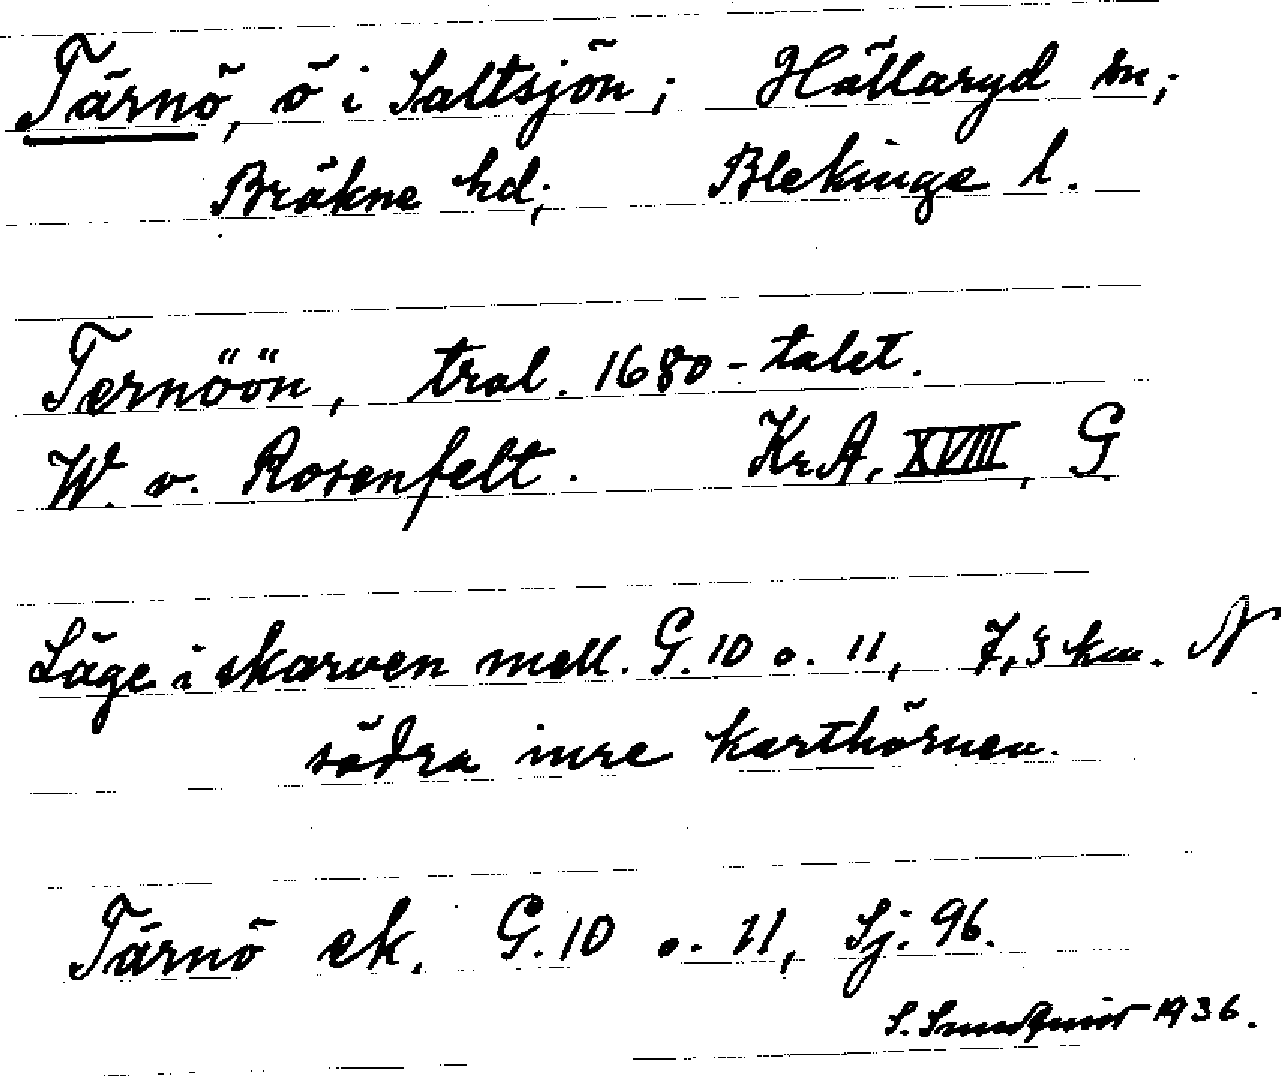 Tärnö, ö i Saltsjön; Hällaryd sn;
Bräkne hd; Blekinge l.
Ternöön, trol. 1680-talet.
W. v. Rosenfelt. Kr.A, XVIII, G
Läge i skarven mell. G.10 o. 11, 7,3 km. N
södra inre karthörnen.
Tärnö ek. G.10 o. 11, Sj. 96.
S. Sundquist 1936.